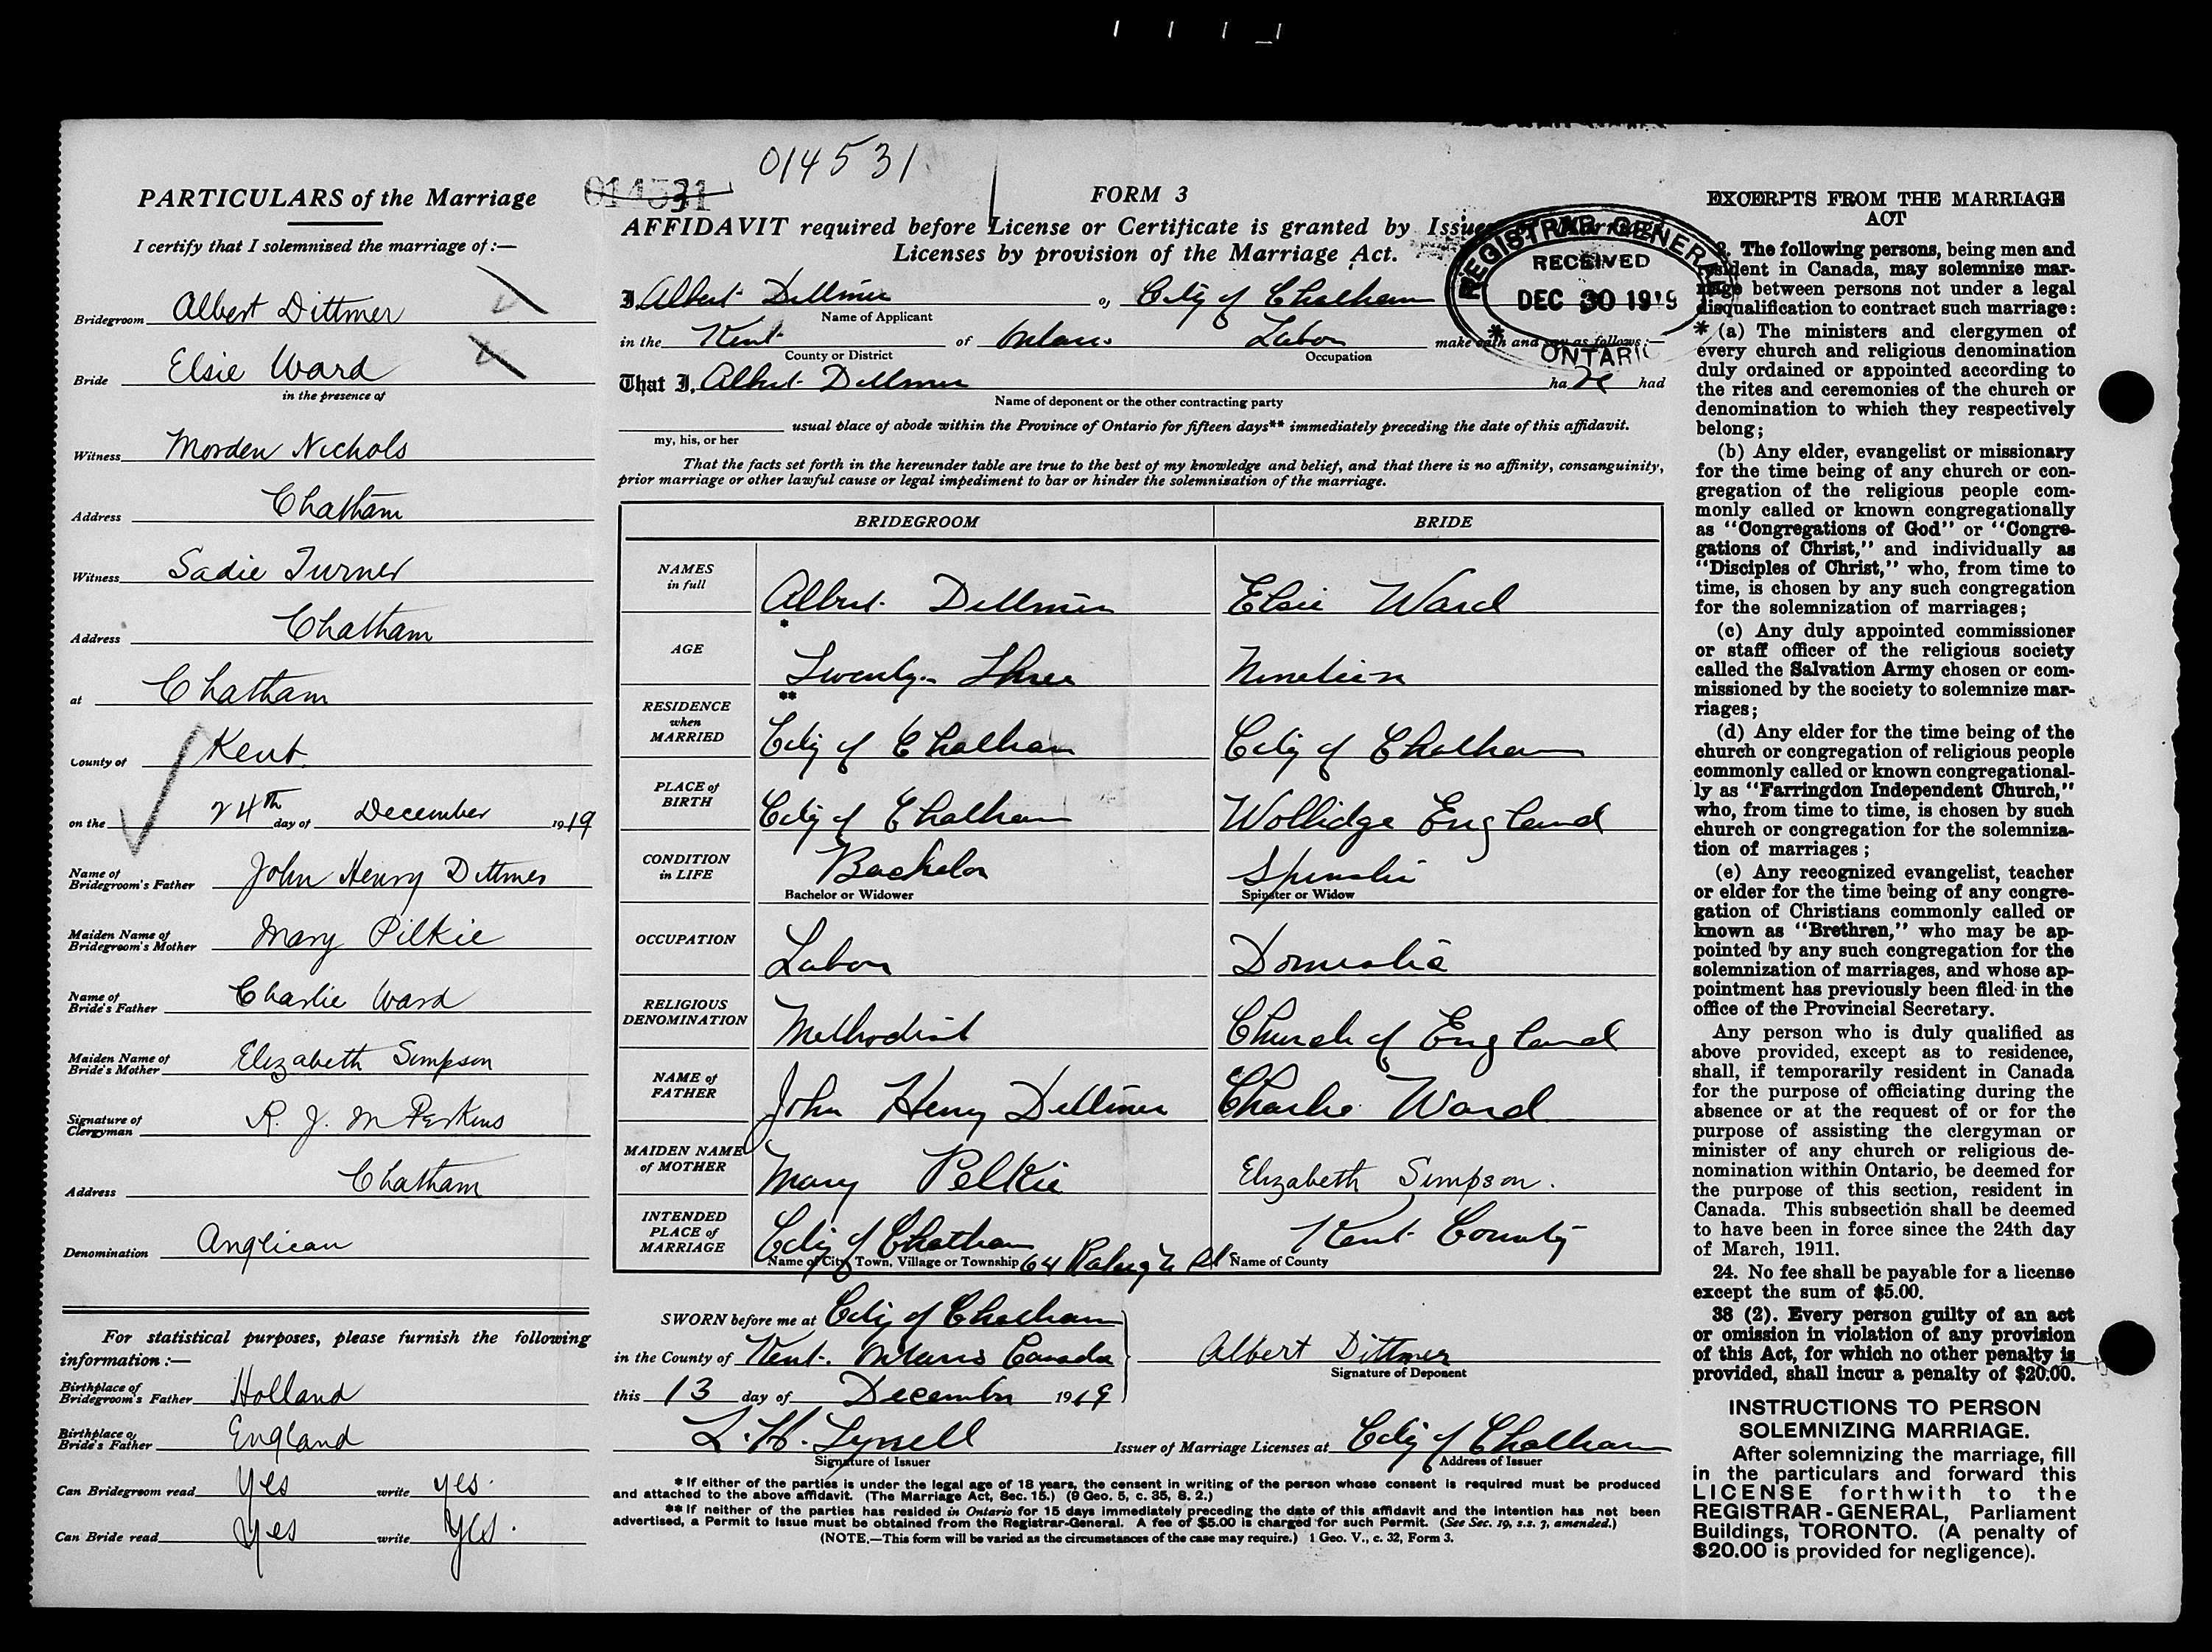 014531
014531
PARTICULARS of the Marriage
I certify that I solemnized the marriage of :—
Bridegroom Albert Dittmer
Bride Elsie Ward
in the presence of
Witness Morden Nichols
Address Chatham
Witness Sadie Turner
Address Chatham
at Chatham
County of Kent
on the 24th day of December 1919
Name of
Bridegroom's Father John Henry Dittmer
Maiden Name of
Bridegroom's Mother Mary Pilkie
Name of
Bride's Father Charlie Ward
Maiden Name of
Bride's Mother Elizabeth Simpson
Signature of
Clergyman R. J. M Perkins
Address Chatham
Denomination Anglican
For statistical purposes, please furnish the following
information :—
Birthplace of
Bridegroom's Father Holland
Birthplace of
Bride's Father England
Can Bridegroom read Yes write yes.
Can Bride read Yes write Yes.
FORM 3
AFFIDAVIT required before License or Certificate is granted by Issuer of Marriage
Licenses by provision of the Marriage Act.
REGISTRAR GENERAL
RECEIVED
DEC 30 1919
ONTARIO
I, Albert Dittmer of City of Chatham
Name of Applicant
in the Kent of Ontario Labor make oath and say as follows :—
County or District Occupation
That I, Albert Dittmer ha ve had
Name of deponent or the other contracting party
usual place of abode within the Province of Ontario for fifteen days** immediately preceding the date of this affidavit.
my, his, or her
That the facts set forth in the hereunder table are true to the best of my knowledge and belief, and that there is no affinity, consanguinity,
prior marriage or other lawful cause or legal impediment to bar or hinder the solemnization of the marriage.
BRIDEGROOM BRIDE
NAMES
in full Albert Dittmer Elsie Ward
*
AGE Twenty-Three Nineteen
**
RESIDENCE
when
MARRIED City of Chatham City of Chatham
PLACE of
BIRTH City of Chatham Wollidge England
CONDITION
in LIFE Bachelor Spinster
Bachelor or Widower Spinster or Widow
OCCUPATION Labor Domestic
RELIGIOUS
DENOMINATION Methodist Church of England
NAME of
FATHER John Henry Dittmer Charlie Ward
MAIDEN NAME
of MOTHER Mary Pelkie Elizabeth Simpson.
INTENDED
PLACE of
MARRIAGE City of Chatham Kent County
Name of City, Town, Village or Township 64 Raleigh St Name of County
SWORN before me at City of Chatham
in the County of Kent. Ontario Canada Albert Dittmer
Signature of Deponent
this 13 day of December 1919
L. H. Tyrrell Issuer of Marriage Licenses at City of Chatham
Signature of Issuer Address of Issuer
* If either of the parties is under the legal age of 18 years, the consent in writing of the person whose consent is required must be produced
and attached to the above affidavit. (The Marriage Act, Sec. 15.) (9 Geo. 5, c. 35, S. 2.)
** If neither of the parties has resided in Ontario for 15 days immediately preceding the date of this affidavit and the intention has not been
advertised, a Permit to Issue must be obtained from the Registrar-General. A fee of $5.00 is charged for such Permit. (See Sec. 19, s.s. 3, amended.)
(NOTE.—This form will be varied as the circumstances of the case may require.) 1 Geo. V., c. 32, Form 3.
EXCERPTS FROM THE MARRIAGE
ACT
2. The following persons, being men and
resident in Canada, may solemnize mar-
riage between persons not under a legal
disqualification to contract such marriage:
(a) The ministers and clergymen of
every church and religious denomination
duly ordained or appointed according to
the rites and ceremonies of the church or
denomination to which they respectively
belong;
(b) Any elder, evangelist or missionary
for the time being of any church or con-
gregation of the religious people com-
monly called or known congregationally
as "Congregations of God" or "Congre-
gations of Christ," and individually as
"Disciples of Christ," who, from time to
time, is chosen by any such congregation
for the solemnization of marriages;
(c) Any duly appointed commissioner
or staff officer of the religious society
called the Salvation Army chosen or com-
missioned by the society to solemnize mar-
riages;
(d) Any elder for the time being of the
church or congregation of religious people
commonly called or known congregational-
ly as "Farringdon Independent Church,"
who, from time to time, is chosen by such
church or congregation for the solemniza-
tion of marriages;
(e) Any recognized evangelist, teacher
or elder for the time being of any congre-
gation of Christians commonly called or
known as "Brethren," who may be ap-
pointed by any such congregation for the
solemnization of marriages, and whose ap-
pointment has previously been filed in the
office of the Provincial Secretary.
Any person who is duly qualified as
above provided, except as to residence,
shall, if temporarily resident in Canada
for the purpose of officiating during the
absence or at the request of or for the
purpose of assisting the clergyman or
minister of any church or religious de-
nomination within Ontario, be deemed for
the purpose of this section, resident in
Canada. This subsection shall be deemed
to have been in force since the 24th day
of March, 1911.
24. No fee shall be payable for a license
except the sum of $5.00.
38 (2). Every person guilty of an act
or omission in violation of any provision
of this Act, for which no other penalty is
provided, shall incur a penalty of $20.00.
INSTRUCTIONS TO PERSON
SOLEMNIZING MARRIAGE.
After solemnizing the marriage, fill
in the particulars and forward this
LICENSE forthwith to the
REGISTRAR-GENERAL, Parliament
Buildings, TORONTO. (A penalty of
$20.00 is provided for negligence).